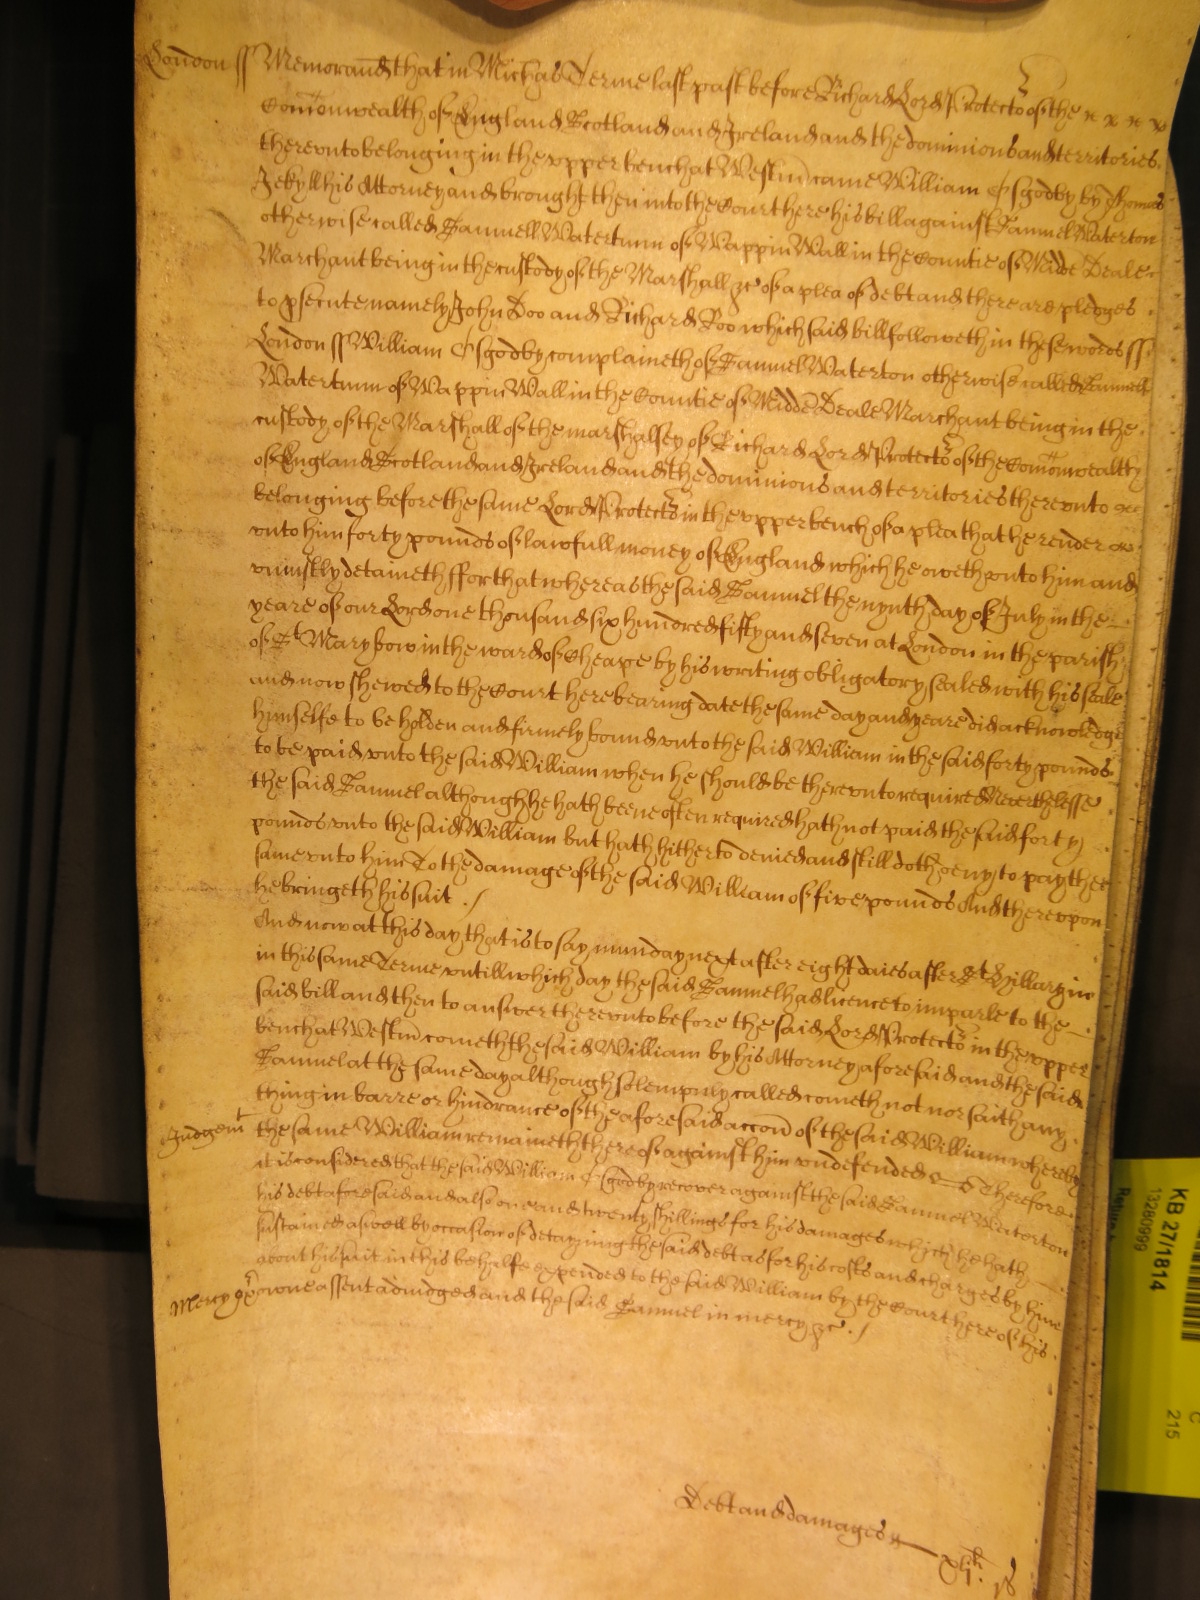 London ss Memorand that in Michas Terme last past before Richard Lord Protector of the
Comonwealth of England Scotland and Ireland and the dominions and territories
therevnto belonging in the vpper bench at Westm came William Osgodby by Thomas
Jekyll his Attorney and brought then into the Court here his bill against Samuel Waterton
otherwise called Samuell Waterturn of Wappin Wall in the Countie of Midd Deale
Marchant being in the custody of the Marshall &c of a plea of debt and there are pledges
to psecute namely John Doo and Richard Roo which said bill followeth in these words ss
London ss William Osgodby complaineth of Samuel Waterton otherwise called Samuell
Waterturn of Wappin Wall in the Countie of Midd Deale Marchant being in the
custody of the Marshall of the marshalsey of Richard Lord Protector of the Comonwealth
of England Scotland and Ireland and the dominions and territories therevnto
belonging before the same Lord Protector in the vpper bench of a plea that he render
vnto him forty pounds of lawfull money of England which he oweth vnto him and
vniustly detaineth ffor that whereas the said Samuel the nynth day of July in the
yeare of our Lord one thousand six hundred fifty and seven at London in the parish
of St Mary bow in the ward of Cheape by his writing obligatory sealed with his seale
and now shewed to the Court here bearing date the same day and yeare did acknowledge
himselfe to be holden and firmely bound vnto the said William in the said forty pounds
to be paid vnto the said William when he should be therevnto required Neverthelesse
the said Samuel although he hath beene often required hath not paid the said forty
pounds vnto the said William but hath hitherto denied and still doth deny to pay the
same vnto him To the damage of the said William of five pounds And therevpon
he bringeth his suit ./
And now at this day that is to say munday next after eight daies after St Hillary in
in this same Terme vntill which day the said Samuel had licence to imparle to the
said bill and then to answer therevnto before the said Lord Protector in the vpper
bench at Westm cometh the said William by his Attorney aforesaid and the said
Samuel at the same day although solempnly called cometh not nor saith any
thing in barre or hindrance of the aforesaid accon of the said William whereby
Judgemt the same William remaineth thereof against him vndefended Therefore
it is considered that the said William Osgodby recover against the said Samuel Waterton
his debt aforesaid and also one and twenty shillings for his damages which he hath
sustained aswell by occasion of detayning the said debt as for his costs and charges by him
about his suit in this behalfe expended to the said William by the Court here of his
Mercy owne assent adiudged and the said Samuel in mercy &c ./
Debt and damages xljli js
KB 27/1814
13280999
C
215